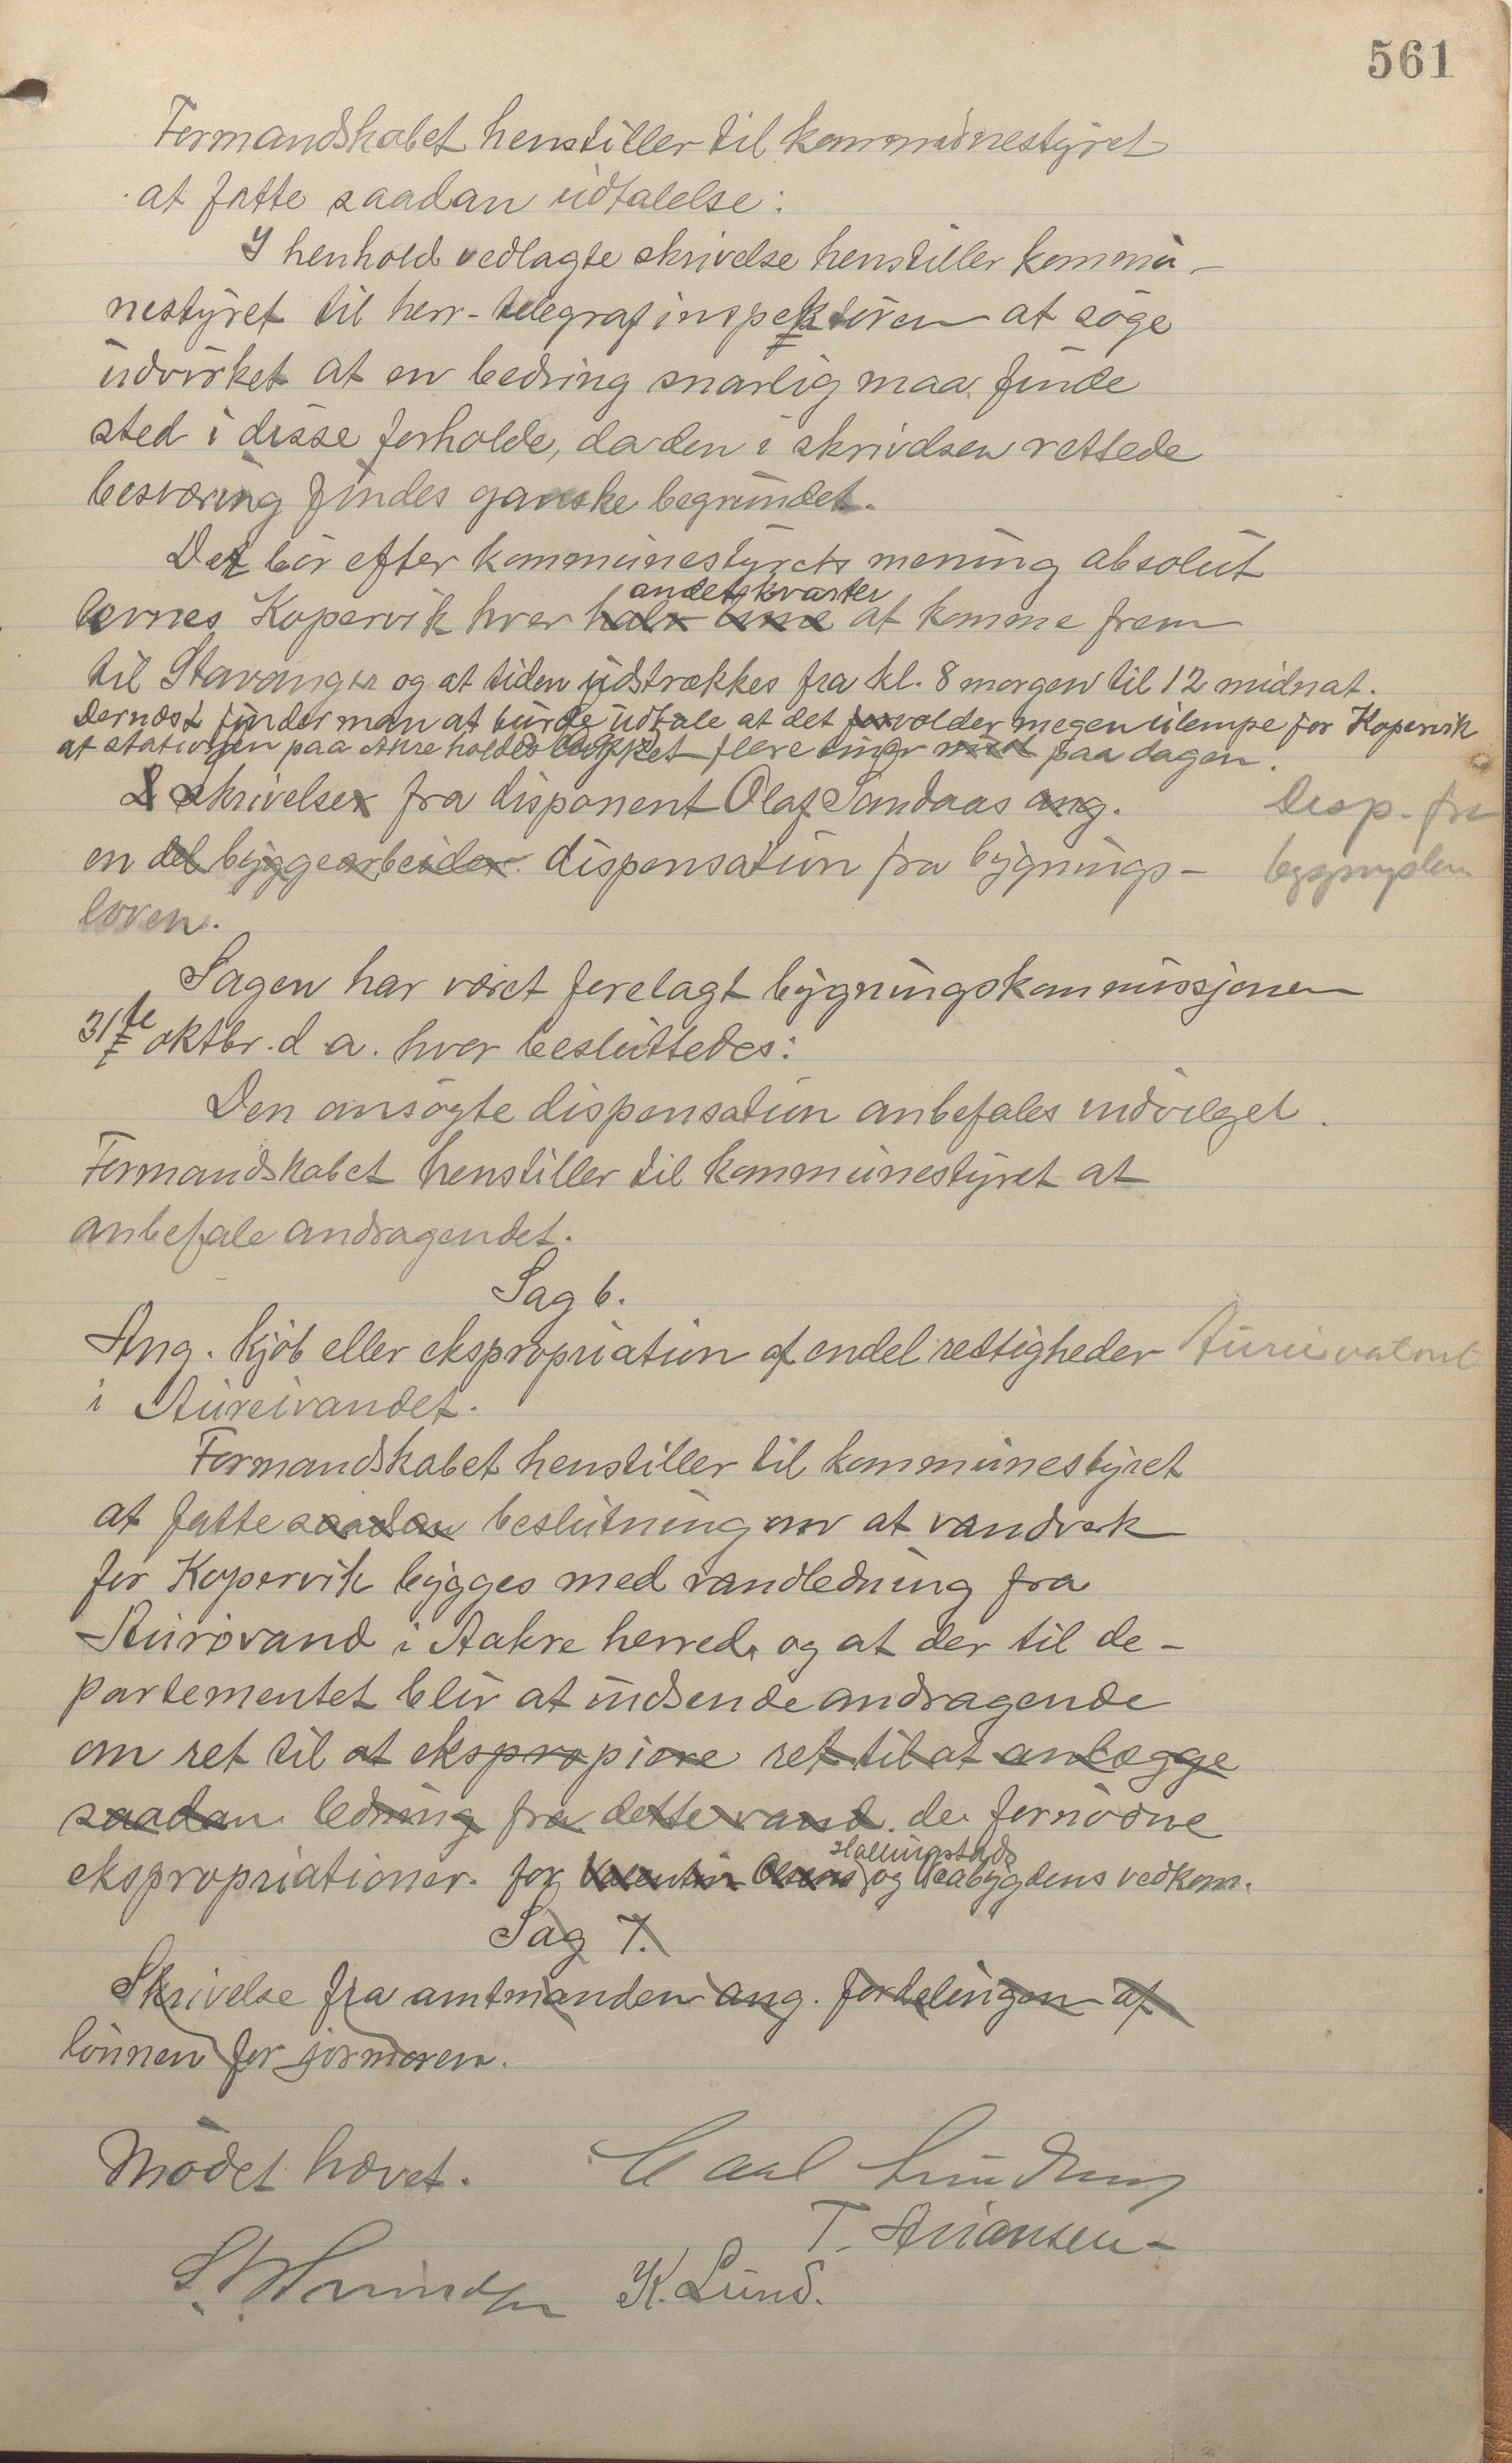 561
Formandskabet henstiller til kommunestyret
at fatte saadan udtalelse:
I henhold vedlagte skrivelse henstiller kommu-
nestyret til herr telegrafinspektøren at søge
udvirket at en bedring snarlig maa finde
sted i disse forholde, da den i skrivelsen rettede
besværing findes ganske begrundet.
Det bør efter kommunestyrets mening absolut
andetkvarter
levnes Kopervik hver halv time at komme frem
til Stavanger og at tiden udstrækkes fra kl. 8 morgen til 12 midnat.
Dernæst finder man at burde udtale at det forvolder megen ulempe for Kopervik
at stationen paa Akre holdes lukket flere timer paa dagen.
skrivelse fra disponent Olaf Sandaas ang.
Disp. fra
en del byggearbeider dispensation fra bygnings-
loven.
Sagen har været forelagt bygningskommissjonen
31te oktbr. d a. hvor besluttedes:
Den ansøgte dispensation anbefales indvilget.
Formandskabet henstiller til kommunestyret at
anbefale andragendet.
Sag 6.
Ang. kjøb eller ekspropriation af endel rettigheder
i Aureivandet.
Formandskabet henstiller til kommunestyret
at fatte saadan beslutning om at vandverk
for Kopervik bygges med vandledning fra
Aurøvand i Aakre herred, og at der til de-
partementet blir at indsende andragende
om ret til at ekspropiere ret til at anlægge
saadan ledning fra dette vand. de fornødne
ekspropriationer for Valentin Olsens og Veabygdens vedkom.
Sag 7.
Skrivelse fra amtmanden ang. fordelingen af
lønnen for jormoren.
Mødet hævet.
T. Ariansen
K. Lund.